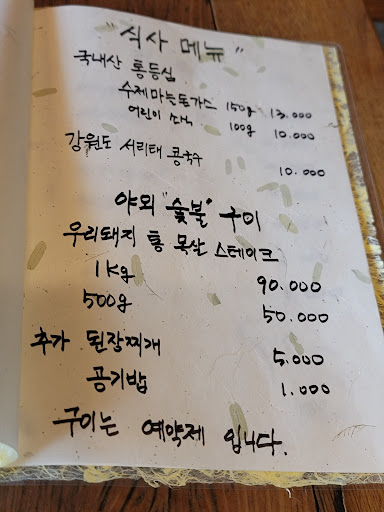 "식사 메뉴"
국내산 통등심
수제마늘돈가스 150g 13.000
어린이 100g 10.000
강원도 서리태 콩국수
10.000
야외 "숯불" 구이
우리돼지 통 목살 스테이크
1kg 90.000
500g 50.000
추가 된장찌개 5.000
공기밥 1.000
구이는 예약제 입니다.